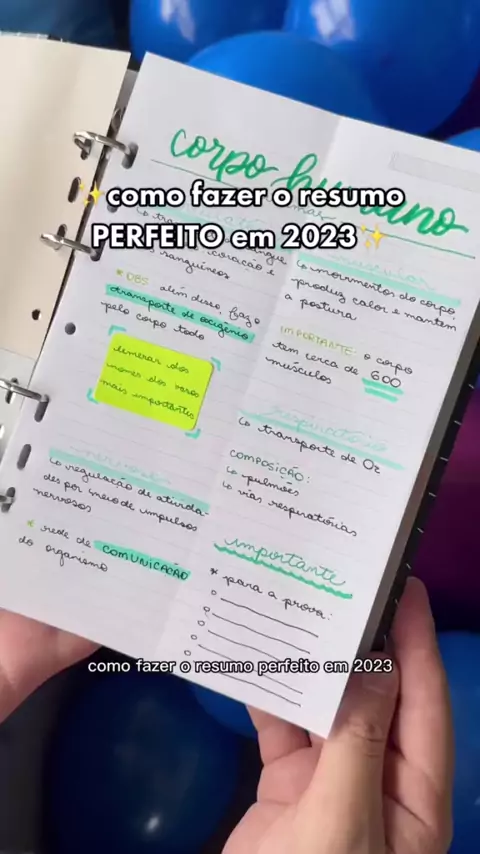 corpo humano
✨como fazer o resumo
PERFEITO em 2023✨
sanguíneos
coração e
* OBS além disso, faz o
transporte de oxigênio
pelo corpo todo
lembrar dos
nomes dos vasos
mais importantes
↳ regulação de ativida-
des por meio de impulsos
nervosos
* rede de COMUNICAÇÃO
do organismo
↳ movimentos do corpo,
produz calor e mantém
a postura
IMPORTANTE: o corpo
tem cerca de 600
músculos
respiratório
↳ transporte de O2
COMPOSIÇÃO:
↳ pulmões
↳ vias respiratórias
importante
* para a prova:
como fazer o resumo perfeito em 2023